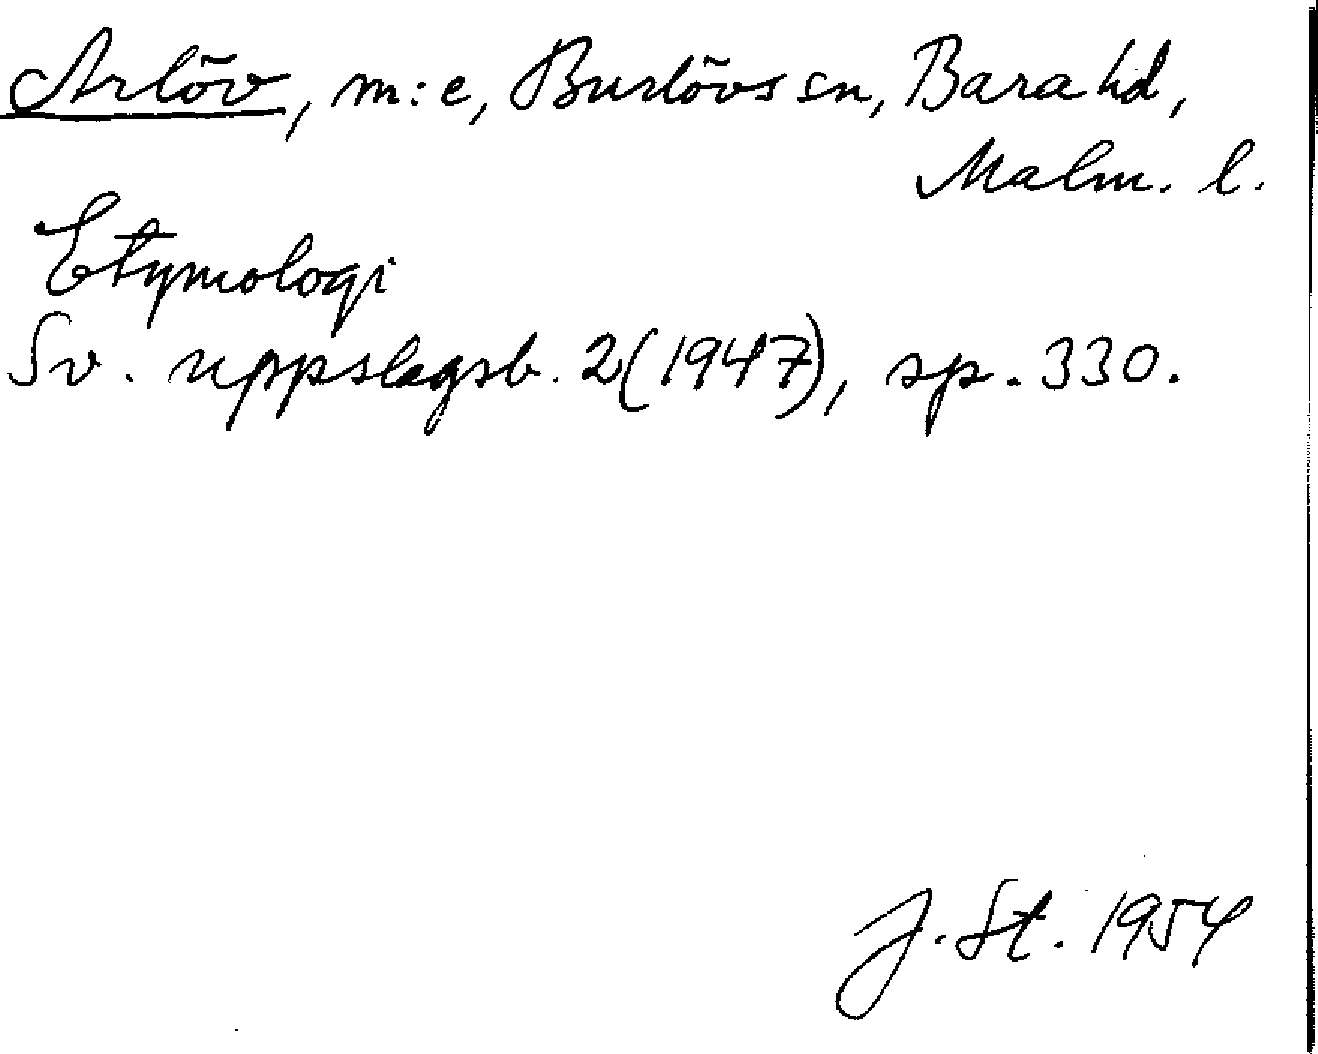 Arlöv, m:e, Burlövs sn, Bara hd,
Malm. l.
Etymologi
Sv. uppslagsb. 2 (1947), sp. 330.
J. St. 1954